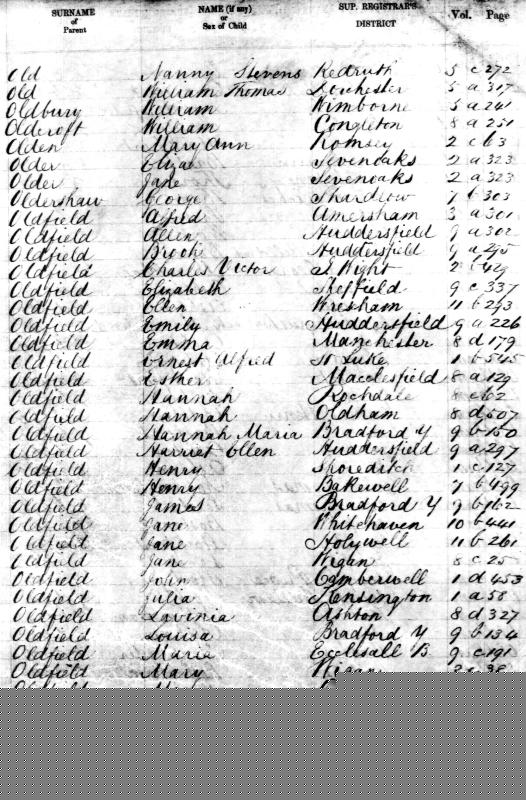 SURNAME of Parent NAME (if any) or Sex of Child SUP. REGISTRAR'S DISTRICT Vol. Page
Old Nanny Stevens Redruth 5 c 272
Old William Thomas Dorchester 5 a 317
Oldbury William Wimborne 5 a 241
Oldcroft William Congleton 8 a 251
Olden Mary Ann Romsey 2 c 63
Older Eliza Sevenoaks 2 a 323
Older Jane Sevenoaks 2 a 323
Oldershaw George Shardlow 7 b 303
Oldfield Alfred Amersham 3 a 301
Oldfield Allen Huddersfield 9 a 302
Oldfield Brook Huddersfield 9 a 295
Oldfield Charles Victor I. Wight 2 b 429
Oldfield Elizabeth Sheffield 9 c 337
Oldfield Ellen Wrexham 11 b 293
Oldfield Emily Huddersfield 9 a 226
Oldfield Emma Manchester 8 d 179
Oldfield Ernest Alfred St Luke 1 b 545
Oldfield Esther Macclesfield 8 a 129
Oldfield Hannah Rochdale 8 e 62
Oldfield Hannah Oldham 8 d 507
Oldfield Hannah Maria Bradford Y 9 b 150
Oldfield Harriet Ellen Huddersfield 9 a 297
Oldfield Henry Shoreditch 1 c 127
Oldfield Henry Bakewell 7 b 499
Oldfield James Bradford Y 9 b 162
Oldfield Jane Whitehaven 10 b 441
Oldfield Jane Holywell 11 b 261
Oldfield Jane Wigan 8 c 25
Oldfield John Camberwell 1 d 453
Oldfield Julia Kensington 1 a 58
Oldfield Lavinia Ashton 8 d 327
Oldfield Louisa Bradford Y 9 b 134
Oldfield Maria Ecclesall B 9 c 191
Oldfield Mary Wigan